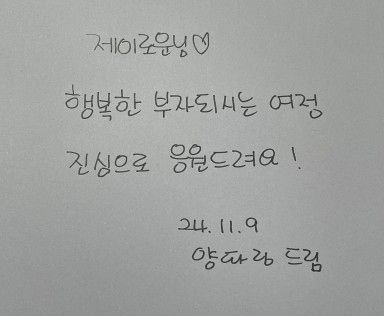 제이로운님♡
행복한 부자되시는 여정
진심으로 응원드려요!
24.11.9
양파링 드림